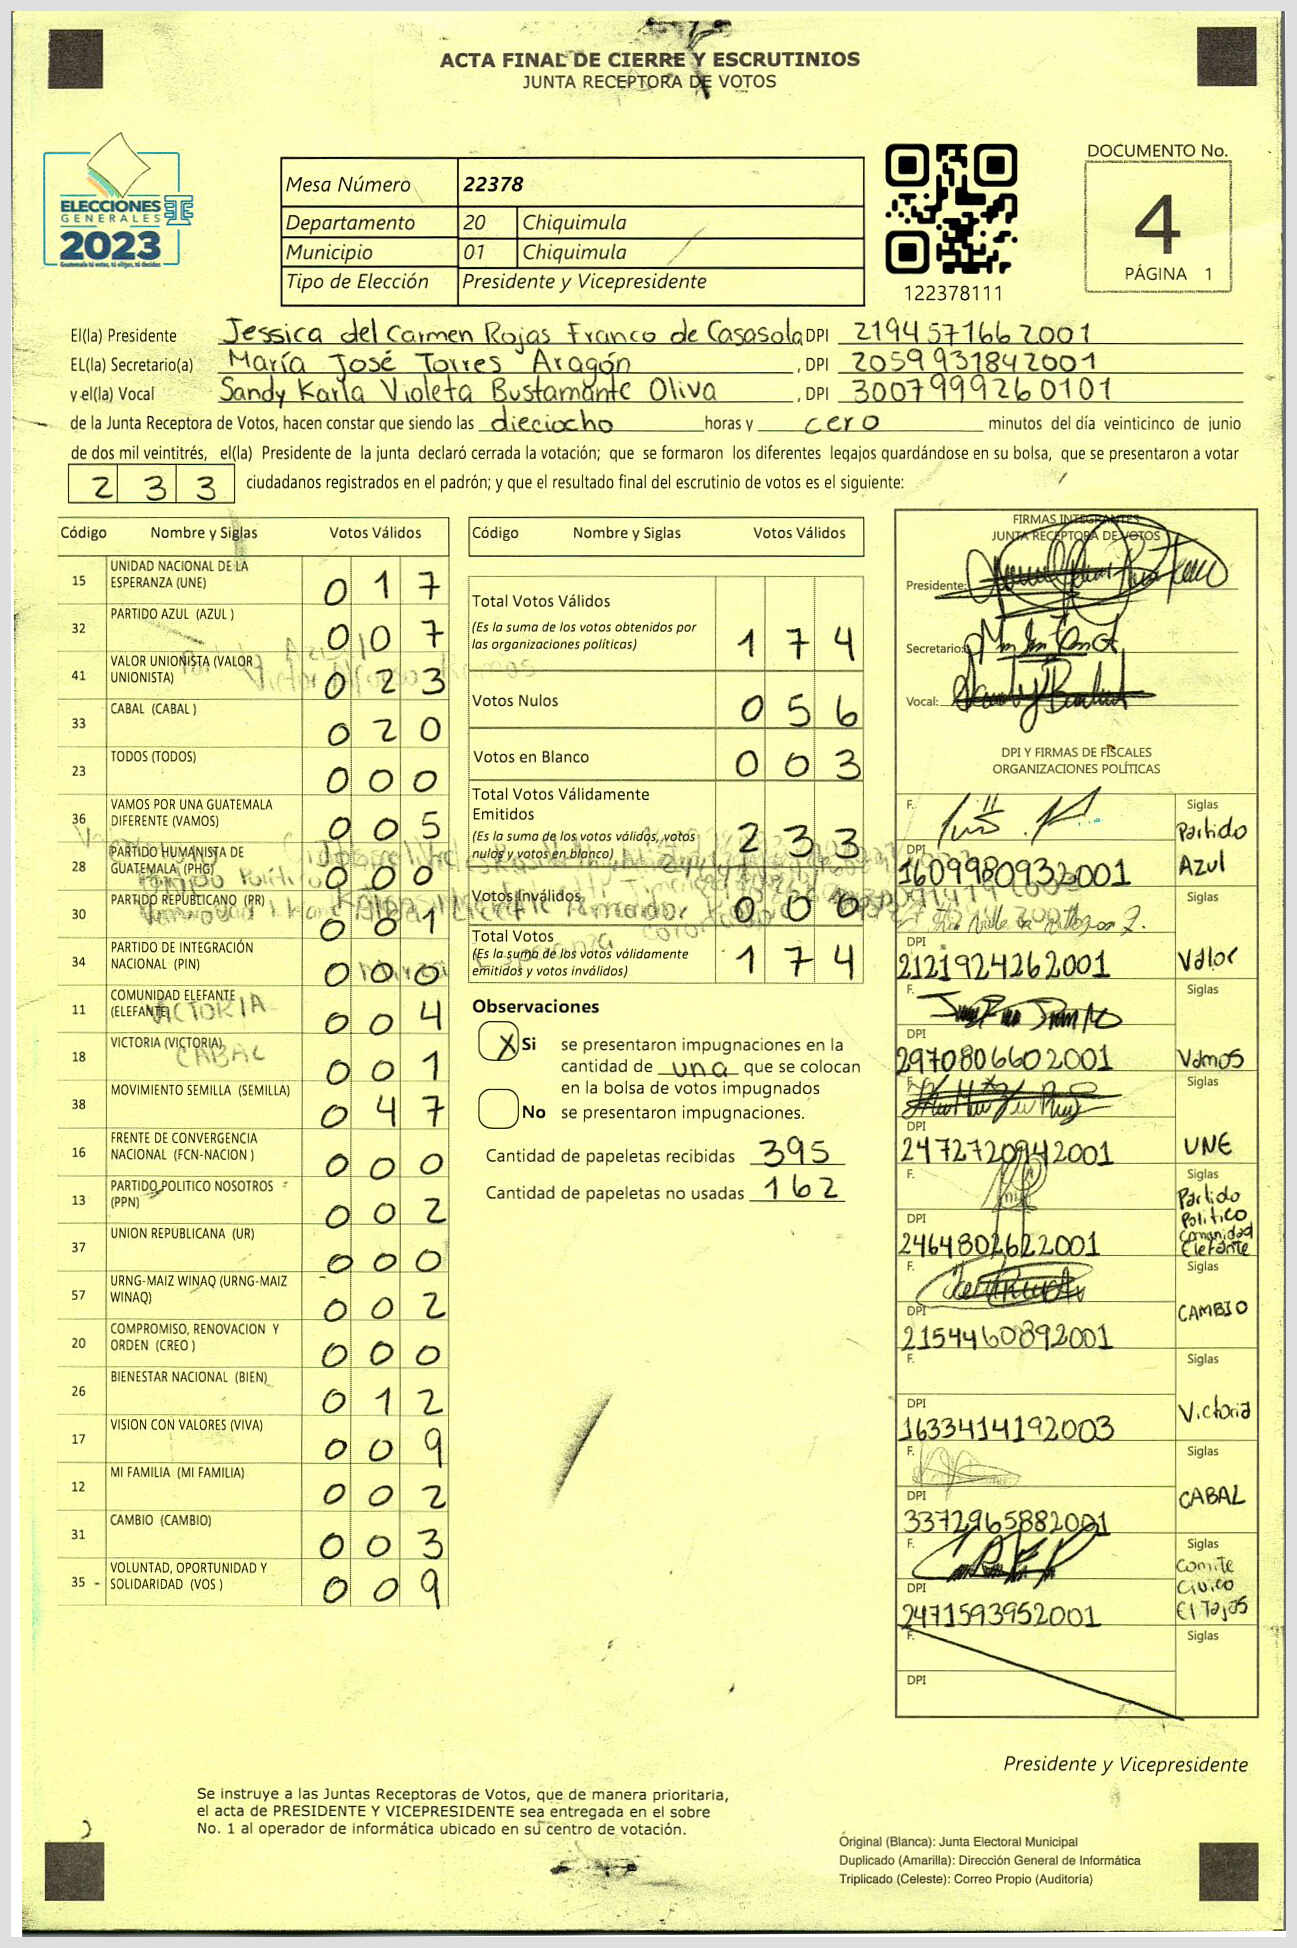 ACTA FINAL DE CIERRE Y ESCRUTINIOS
JUNTA RECEPTORA DE VOTOS
ELECCIONES
GENERALES
2023
Guatemala tú votas, tú eliges, tú decides
Mesa Número 22378
Departamento 20 Chiquimula
Municipio 01 Chiquimula
Tipo de Elección Presidente y Vicepresidente
122378111
DOCUMENTO No.
4
PÁGINA 1
El(la) Presidente Jessica del Carmen Rojas Franco de Casasola DPI 2194571662001
EL(la) Secretario(a) María José Torres Aragón , DPI 2059931842001
y el(la) Vocal Sandy Karla Violeta Bustamante Oliva , DPI 3007999260101
de la Junta Receptora de Votos, hacen constar que siendo las dieciocho horas y cero minutos del día veinticinco de junio
de dos mil veintitrés, el(la) Presidente de la junta declaró cerrada la votación; que se formaron los diferentes legajos quardándose en su bolsa, que se presentaron a votar
2 3 3 ciudadanos registrados en el padrón; y que el resultado final del escrutinio de votos es el siguiente:
Código Nombre y Siglas Votos Válidos
15 UNIDAD NACIONAL DE LA ESPERANZA (UNE) 0 1 7
32 PARTIDO AZUL (AZUL ) 0 0 7
41 VALOR UNIONISTA (VALOR UNIONISTA) 0 2 3
33 CABAL (CABAL ) 0 2 0
23 TODOS (TODOS) 0 0 0
36 VAMOS POR UNA GUATEMALA DIFERENTE (VAMOS) 0 0 5
28 PARTIDO HUMANISTA DE GUATEMALA (PHG) 0 0 0
30 PARTIDO REPUBLICANO (PR) 0 0 1
34 PARTIDO DE INTEGRACIÓN NACIONAL (PIN) 0 0 0
11 COMUNIDAD ELEFANTE (ELEFANTE) 0 0 4
VICTORIA
18 VICTORIA (VICTORIA) 0 0 1
CABAL
38 MOVIMIENTO SEMILLA (SEMILLA) 0 4 7
16 FRENTE DE CONVERGENCIA NACIONAL (FCN-NACION ) 0 0 0
13 PARTIDO POLITICO NOSOTROS (PPN) 0 0 2
37 UNION REPUBLICANA (UR) 0 0 0
57 URNG-MAIZ WINAQ (URNG-MAIZ WINAQ) 0 0 2
20 COMPROMISO, RENOVACION Y ORDEN (CREO ) 0 0 0
26 BIENESTAR NACIONAL (BIEN) 0 1 2
17 VISION CON VALORES (VIVA) 0 0 9
12 MI FAMILIA (MI FAMILIA) 0 0 2
31 CAMBIO (CAMBIO) 0 0 3
35 VOLUNTAD, OPORTUNIDAD Y SOLIDARIDAD (VOS ) 0 0 9
Código Nombre y Siglas Votos Válidos
Total Votos Válidos
(Es la suma de los votos obtenidos por
las organizaciones politicas) 1 7 4
Votos Nulos 0 5 6
Votos en Blanco 0 0 3
Total Votos Válidamente
Emitidos
(Es la suma de los votos válidos, votos
nulos y votos en blanco) 2 3 3
Votos Inválidos 0 0 0
Total Votos
(Es la suma de los votos válidamente
emitidos y votos inválidos) 1 7 4
Observaciones
X Si se presentaron impugnaciones en la
cantidad de una que se colocan
en la bolsa de votos impugnados
No se presentaron impugnaciones.
Cantidad de papeletas recibidas 395
Cantidad de papeletas no usadas 162
FIRMAS INTEGRANTES
JUNTA RECEPTORA DE VOTOS
Presidente:
Secretario:
Vocal:
DPI Y FIRMAS DE FISCALES
ORGANIZACIONES POLÍTICAS
F. Siglas
Partido
DPI
1609980932001 Azul
F. Siglas
DPI
2121924262001 Valor
F. Siglas
DPI
2970806602001 Vamos
F. Siglas
DPI
2472720942001 UNE
F. Siglas
Partido
Politico
DPI Comunidad
2464802622001 Elefante
F. Siglas
DPI CAMBIO
2154460892001
F. Siglas
DPI Victoria
1633414192003
F. Siglas
DPI CABAL
3372965882001
F. Siglas
Comite
DPI Civico
2471593952001 El Tajos
F. Siglas
DPI
Presidente y Vicepresidente
Se instruye a las Juntas Receptoras de Votos, que de manera prioritaria,
el acta de PRESIDENTE Y VICEPRESIDENTE sea entregada en el sobre
No. 1 al operador de informática ubicado en su centro de votación.
Original (Blanca): Junta Electoral Municipal
Duplicado (Amarilla): Dirección General de Informática
Triplicado (Celeste): Correo Propio (Auditoría)